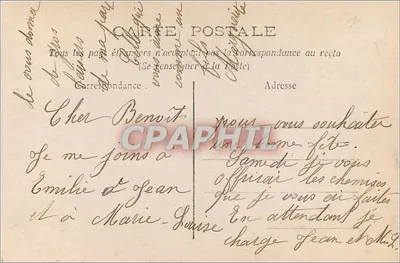 CARTE POSTALE
Tous les pays étrangers n'acceptent pas la correspondance au recto
(Se renseigner à la Poste)
Correspondance
Adresse
Cher Benoit
Je me joins à
Emilie & Jean
et à Marie-Louise
pour vous souhaiter
bonne fête.
Samedi je vous
offrirai les chemises
que je vous ai faites
En attendant je
charge Jean et M. L.
de vous donner
de gros
baisers
de ma part
vous aime
comme un
fils
CPAPHIL